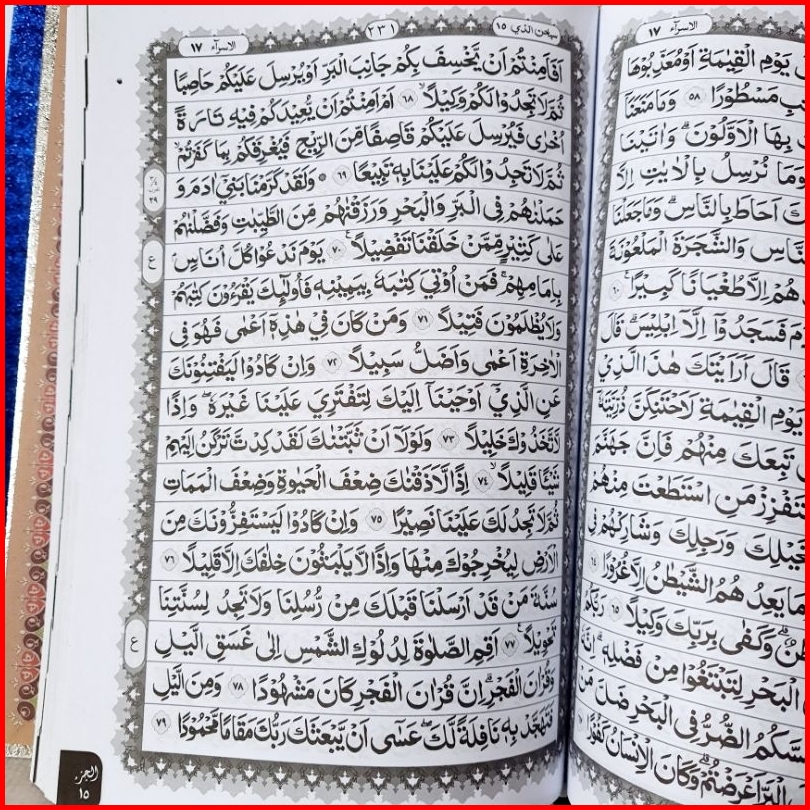 الاسرآء ١٧
٢٣١
سبحن الذي ١٥
اَفَاَمِنْتُمْ اَنْ يَّخْسِفَ بِكُمْ جَانِبَ الْبَرِّ اَوْ يُرْسِلَ عَلَيْكُمْ حَاصِبًا
ثُمَّ لَا تَجِدُوْا لَكُمْ وَكِيْلًا ۙ ٦٨ اَمْ اَمِنْتُمْ اَنْ يُّعِيْدَكُمْ فِيْهِ تَارَةً
اُخْرٰى فَيُرْسِلَ عَلَيْكُمْ قَاصِفًا مِّنَ الرِّيْحِ فَيُغْرِقَكُمْ بِمَا كَفَرْتُمْ ۙ
ثُمَّ لَا تَجِدُوْا لَكُمْ عَلَيْنَا بِهٖ تَبِيْعًا ٦٩ ۞ وَلَقَدْ كَرَّمْنَا بَنِيْٓ اٰدَمَ وَ
حَمَلْنٰهُمْ فِى الْبَرِّ وَالْبَحْرِ وَرَزَقْنٰهُمْ مِّنَ الطَّيِّبٰتِ وَفَضَّلْنٰهُمْ
عَلٰى كَثِيْرٍ مِّمَّنْ خَلَقْنَا تَفْضِيْلًا ۚ ٧٠ يَوْمَ نَدْعُوْا كُلَّ اُنَاسٍۢ
بِاِمَامِهِمْ ۚ فَمَنْ اُوْتِيَ كِتٰبَهٗ بِيَمِيْنِهٖ فَاُولٰۤىِٕكَ يَقْرَءُوْنَ كِتٰبَهُمْ
وَلَا يُظْلَمُوْنَ فَتِيْلًا ٧١ وَمَنْ كَانَ فِيْ هٰذِهٖٓ اَعْمٰى فَهُوَ فِى
الْاٰخِرَةِ اَعْمٰى وَاَضَلُّ سَبِيْلًا ٧٢ وَاِنْ كَادُوْا لَيَفْتِنُوْنَكَ
عَنِ الَّذِيْٓ اَوْحَيْنَآ اِلَيْكَ لِتَفْتَرِيَ عَلَيْنَا غَيْرَهٗ ۖ وَاِذًا
لَّاتَّخَذُوْكَ خَلِيْلًا ٧٣ وَلَوْلَآ اَنْ ثَبَّتْنٰكَ لَقَدْ كِدْتَّ تَرْكَنُ اِلَيْهِمْ
شَيْـًٔا قَلِيْلًا ۙ ٧٤ اِذًا لَّاَذَقْنٰكَ ضِعْفَ الْحَيٰوةِ وَضِعْفَ الْمَمَاتِ
ثُمَّ لَا تَجِدُ لَكَ عَلَيْنَا نَصِيْرًا ٧٥ وَاِنْ كَادُوْا لَيَسْتَفِزُّوْنَكَ مِنَ
الْاَرْضِ لِيُخْرِجُوْكَ مِنْهَا وَاِذًا لَّا يَلْبَثُوْنَ خِلٰفَكَ اِلَّا قَلِيْلًا ٧٦
سُنَّةَ مَنْ قَدْ اَرْسَلْنَا قَبْلَكَ مِنْ رُّسُلِنَا وَلَا تَجِدُ لِسُنَّتِنَا
تَحْوِيْلًا ۚ ٧٧ اَقِمِ الصَّلٰوةَ لِدُلُوْكِ الشَّمْسِ اِلٰى غَسَقِ الَّيْلِ
وَقُرْاٰنَ الْفَجْرِ ۗ اِنَّ قُرْاٰنَ الْفَجْرِ كَانَ مَشْهُوْدًا ٧٨ وَمِنَ الَّيْلِ
فَتَهَجَّدْ بِهٖ نَافِلَةً لَّكَ ۖ عَسٰٓى اَنْ يَّبْعَثَكَ رَبُّكَ مَقَامًا مَّحْمُوْدًا ٧٩
ع
ع
الجزء
١٥
الاسرآء ١٧
يَوْمِ الْقِيٰمَةِ اَوْ مُعَذِّبُوْهَا
مَسْطُوْرًا ٥٨ وَمَا مَنَعَنَآ
بِهَا الْاَوَّلُوْنَ ۗ وَاٰتَيْنَا
وَمَا نُرْسِلُ بِالْاٰيٰتِ اِلَّا
اَحَاطَ بِالنَّاسِ ۗ وَمَا جَعَلْنَا
وَالشَّجَرَةَ الْمَلْعُوْنَةَ
هُمْ اِلَّا طُغْيَانًا كَبِيْرًا ٦٠
فَسَجَدُوْٓا اِلَّآ اِبْلِيْسَ ۗ قَالَ
قَالَ اَرَاَيْتَكَ هٰذَا الَّذِيْ
يَوْمِ الْقِيٰمَةِ لَاَحْتَنِكَنَّ ذُرِّيَّتَهٗٓ
تَبِعَكَ مِنْهُمْ فَاِنَّ جَهَنَّمَ
مَنِ اسْتَطَعْتَ مِنْهُمْ
وَرَجِلِكَ وَشَارِكْهُمْ فِى
يَعِدُهُمُ الشَّيْطٰنُ اِلَّا غُرُوْرًا ٦٤
وَكَفٰى بِرَبِّكَ وَكِيْلًا ٦٥ رَبُّكُمُ
الْبَحْرِ لِتَبْتَغُوْا مِنْ فَضْلِهٖ ۗ اِنَّهٗ
الضُّرُّ فِى الْبَحْرِ ضَلَّ مَنْ
اَعْرَضْتُمْ ۗ وَكَانَ الْاِنْسَانُ كَفُوْرًا